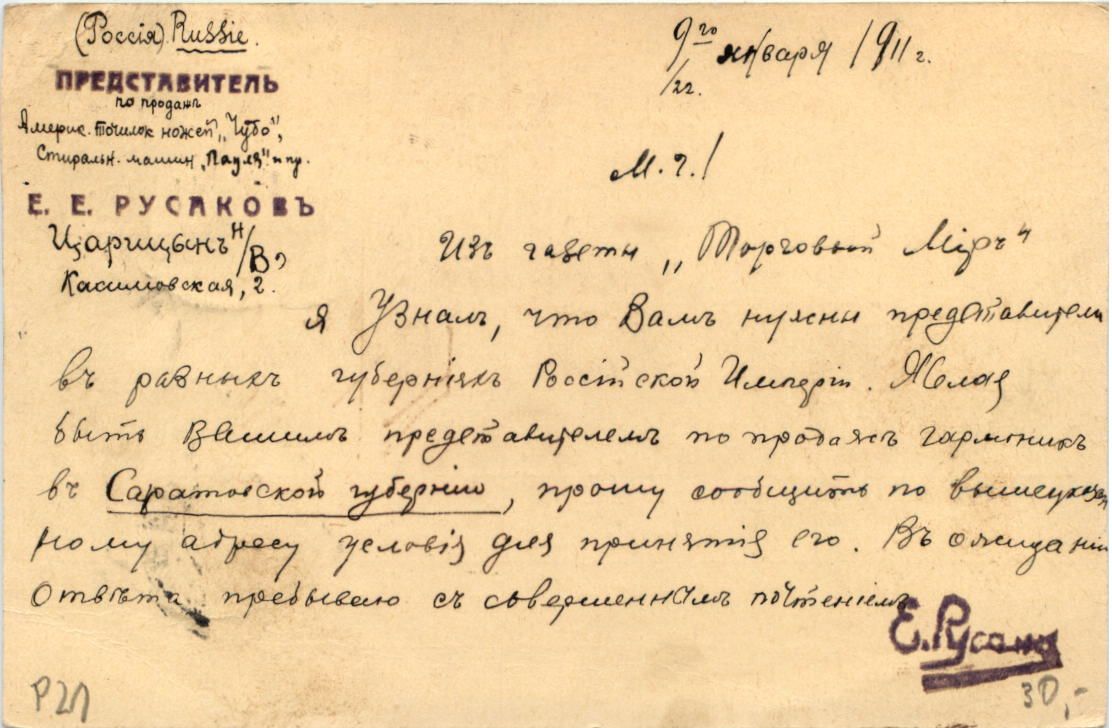 (Россія) Russie.
ПРЕДСТАВИТЕЛЬ
по продажѣ
Америк. точилок ножей „Чубо",
Стиральн. машин „Пауля" и пр.
Е. Е. РУСАКОВЪ
Царицынъ н/В,
Касимовская, 2.
9го/22. января 1911 г.
М. г.!
Изъ газеты „Торговый Міръ"
я узналъ, что Вамъ нужны представители
въ разныхъ губерніяхъ Россійской Имперіи. Желая
быть Вашимъ представителемъ по продажѣ гармоникъ
въ Саратовской губерніи, прошу сообщить по вышеуказан
ному адресу условія для принятія его. Въ ожиданіи
отвѣта пребываю съ совершеннымъ почтеніемъ
Е. Русаковъ
P21
30,-